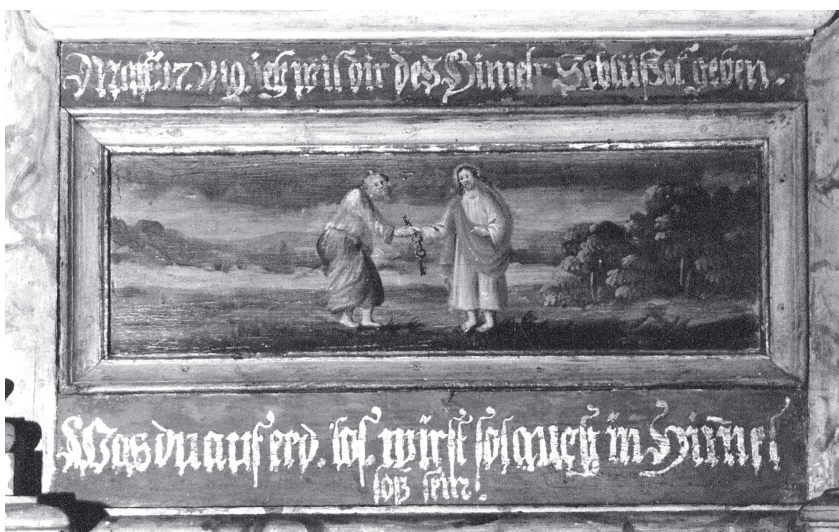 Matth. 17. v 19. ich wil dir des Himels Schlüssel geben.
Was du auf erd. los wirst sol auch im Himmel
loß sein.